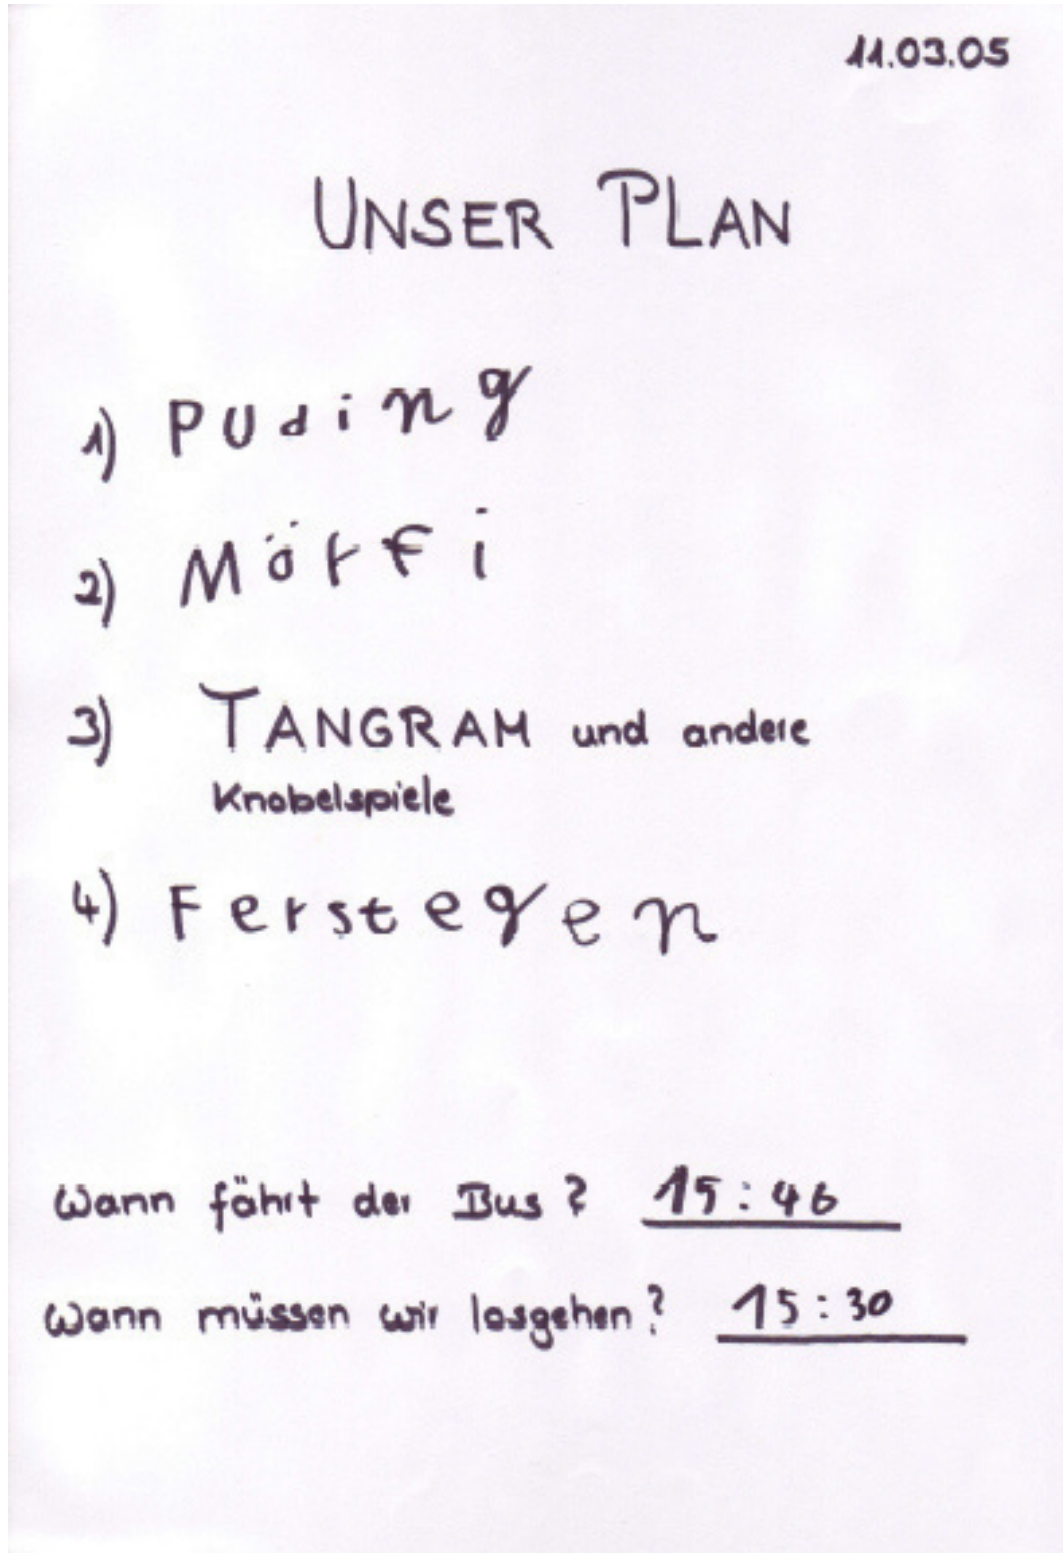 11.03.05
UNSER PLAN
1) PUding
2) Mörfi
3) TANGRAM und andere
Knobelspiele
4) Ferstegen
Wann fährt der Bus? 15:46
Wann müssen wir losgehen? 15:30